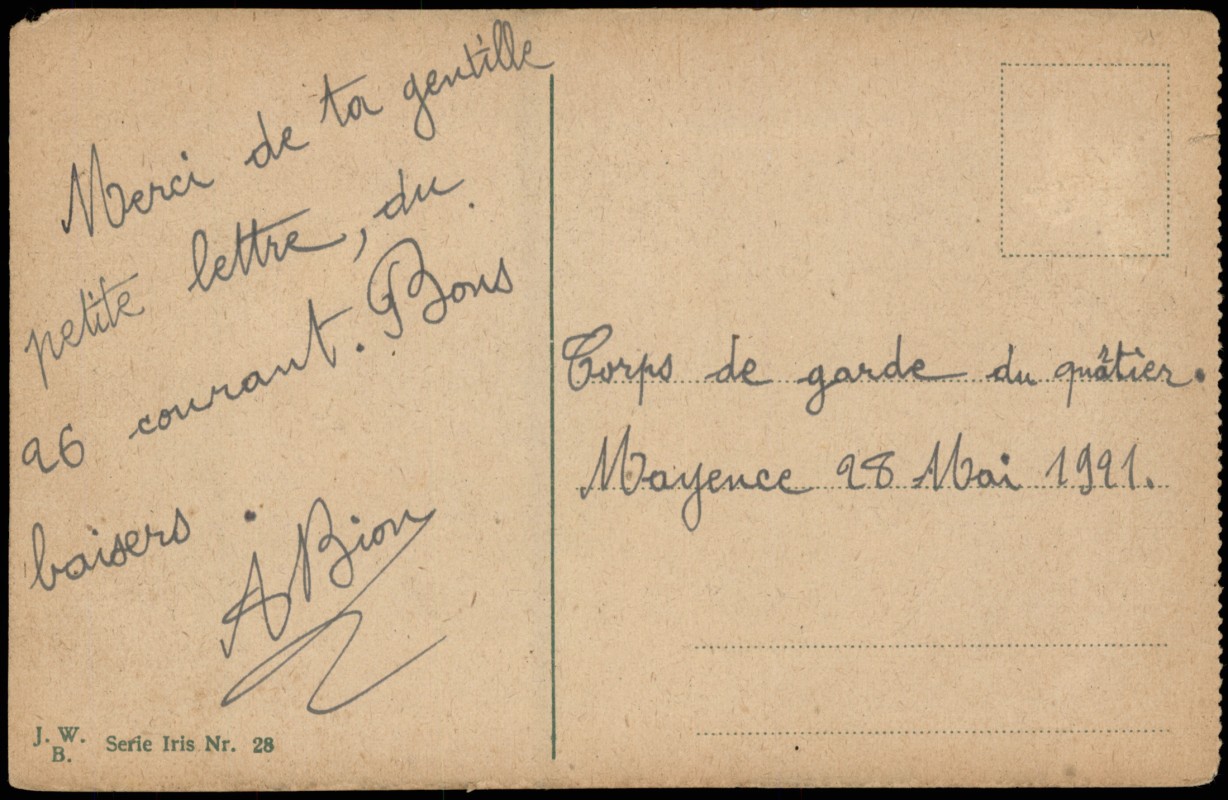 Merci de ta gentille
petite lettre, du
26 courant. Bons
baisers
ABion
Corps de garde du quâtier.
Mayence 28 Mai 1921.
J. W. B. Serie Iris Nr. 28